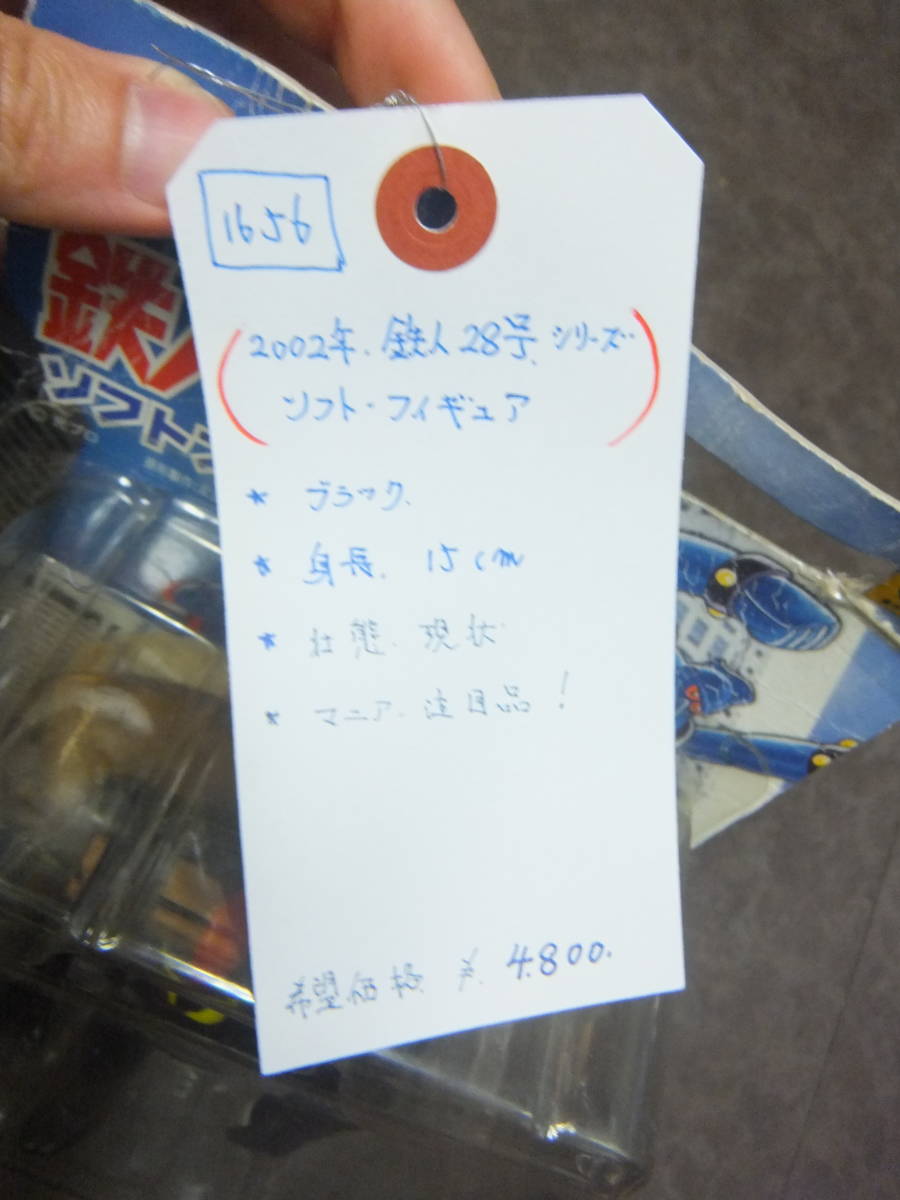 1656
2002年.鉄人28号.シリーズ
ソフト・フィギュア
* ブラック.
* 身長. 15cm
* 状態.現状
* マニア.注目品!
希望価格 ¥. 4.800.
鉄人
ソフト